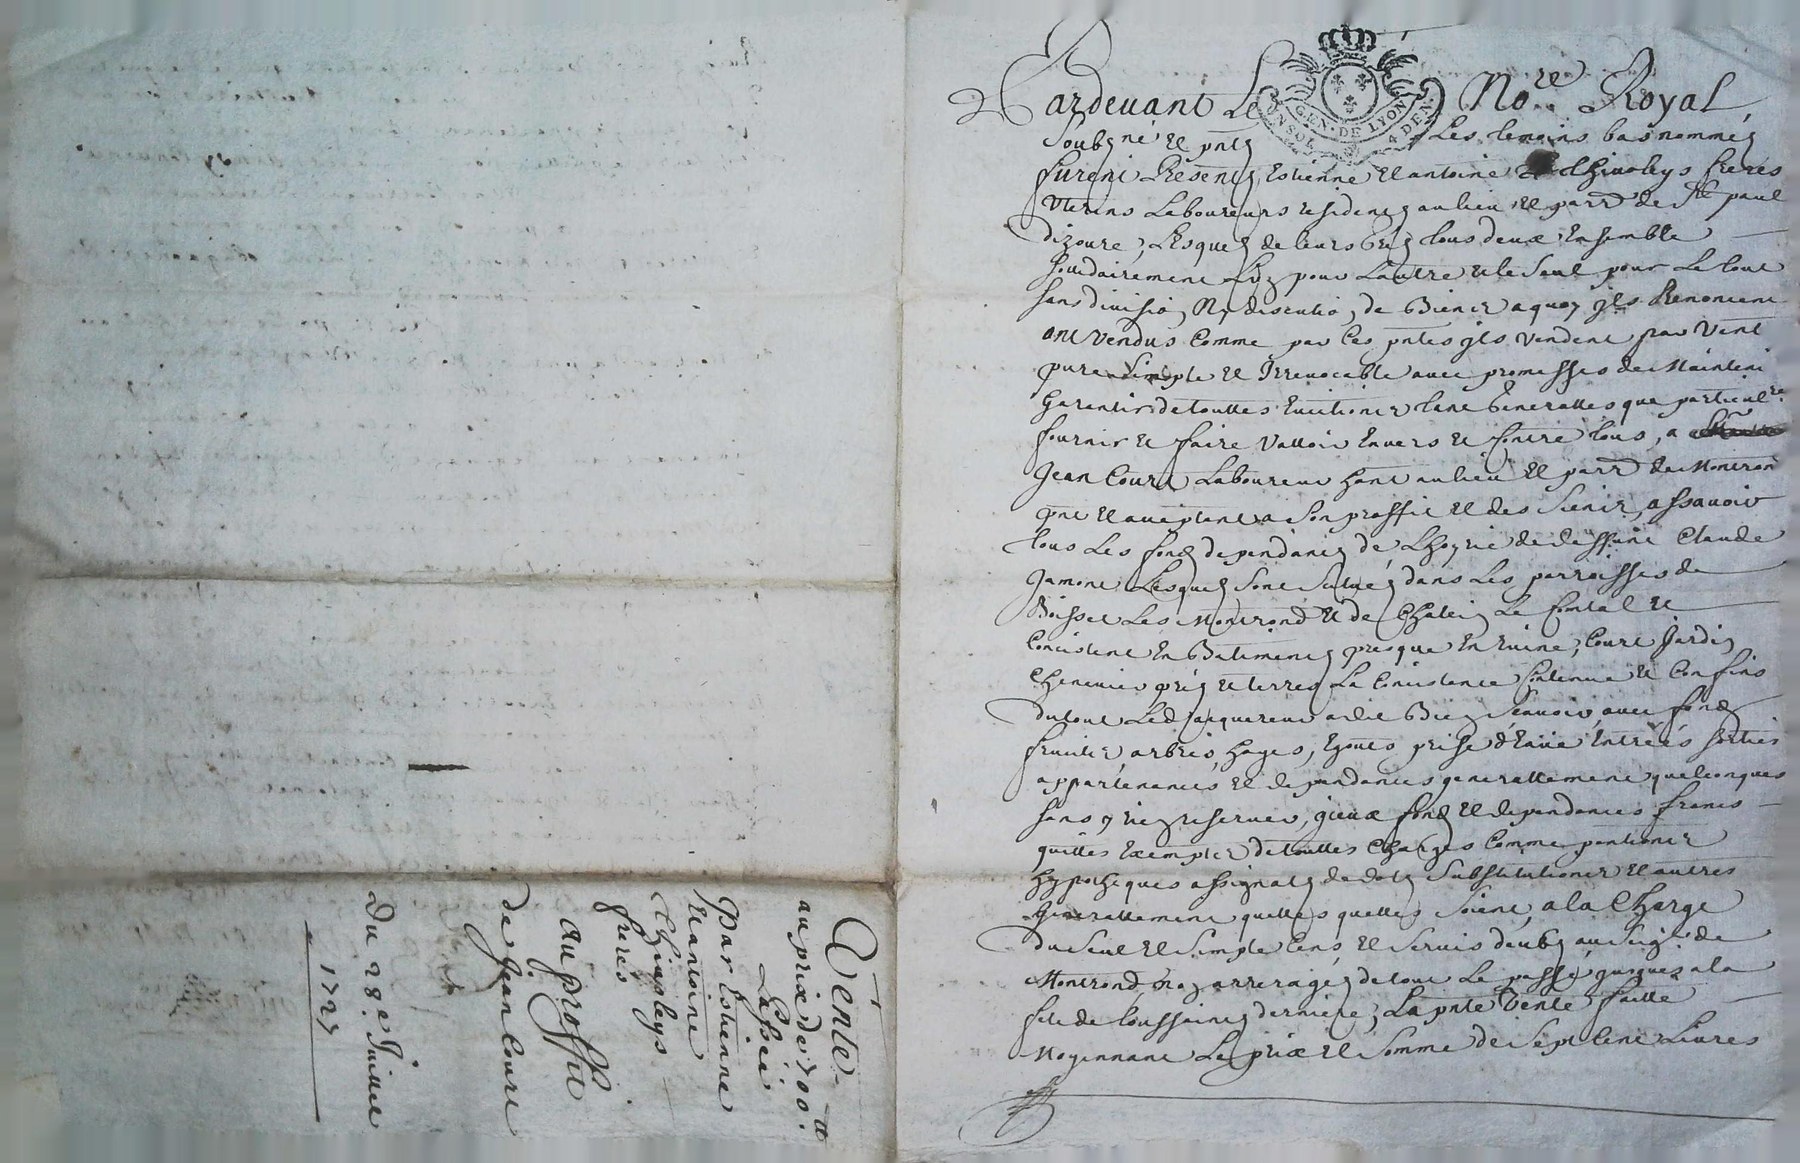 Pardevant Le No.re Royal
GEN. DE LYON
4 DEN.
Soubz.né et pntz Les temoins bas nommez
furent Presentz Estienne et antoine Chivalleys freres
Vterins Laboureurs residentz au lieu et parr. de St paul
dizoure, Lesquelz de leurs grez tous deux Ensemble
solidairement L'un pour L'autre et le Seul pour Le tout
sans division Ny discution de Biens a quoy jls Renoncent
ont vendus Comme par Ces pntes jls vendent par Vent
pure Simple et Irrevocable avec promesses de Maintenir
Garentir de touttes Evictions tant Generalles que particul.res
fournir et faire Valloir Envers et Contre tous, a
Jean Court Laboureur hant au lieu et parr. de Montron
pnt et acceptant a Son proffit et des Siens, assavoir
tous Les fondz dependantz de Lhoyrie de deffunt Claude
Jamont Lesquelz Sont Situez dans Les parroisses de
Boisset Les Montrond et de Chalain Le Comtal et
Consistent En Batimentz presque En ruine, Court Jardin
Chenevier prez et terres La Consistence Contenue et Confins
du tout Led. jacquereur a dit Bien Scavoir, avec fondz
fruitier, arbres, hayes, Egouts, prise d'Eaue Entrées sorties
appartenances et dependances generallement quelconques
sans y rien reserver, yceux fondz et dependances francs
quittes Exemptes de touttes Charges Comme pentions
hypotheques assignatz de dotz Substitutions et autres
Generallement quelles quelles Soient, a la Charge
du Seul et Simple Cens et Servis deubz au Seig.r de
Montrond Et arrerages de tout Le passé jusques a la
fete de toussaintz derniere, La pnte Vente faitte
Moyennant Le prix et Somme de Sept Cent Livres
Vente
au prix de 700.tt
Passée
Par Estienne
Et antoine
Chivalleys
freres
au proffit
de Jean Court
Du 28e Juillet
1727